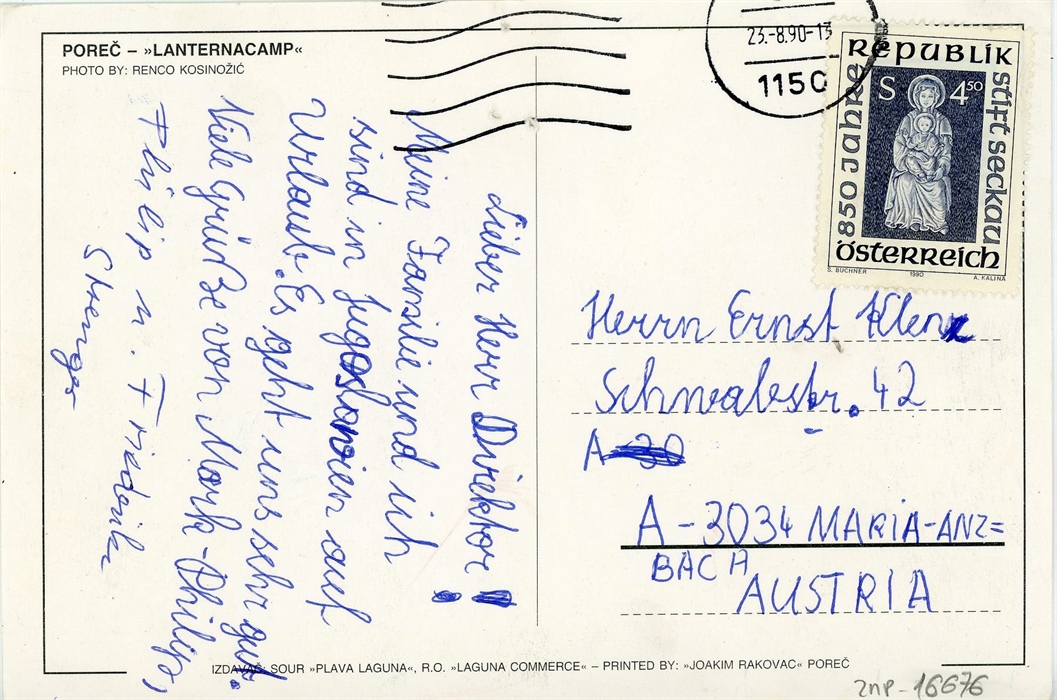 POREČ – »LANTERNACAMP«
PHOTO BY: RENCO KOSINOŽIĆ
Lieber Herr Direktor!
Meine Familie und ich
sind in Jugoslawien auf
Urlaub. Es geht uns sehr gut.
Viele Grüße von Mark-Philip,
Philip u. Friederike
Stenger
23.-8.90-13
1150
REPUBLIK
850 Jahre
Stift Seckau
S 4 50
Österreich
S. BUCHNER 1990 A. KALINA
Herrn Ernst Klenk
Schwabstr. 42
A-30
A-3034 MARIA-ANZ=
BACH
AUSTRIA
IZDAVAČ: SOUR »PLAVA LAGUNA«, R.O. »LAGUNA COMMERCE« – PRINTED BY: »JOAKIM RAKOVAC« POREČ
ZNP-16676